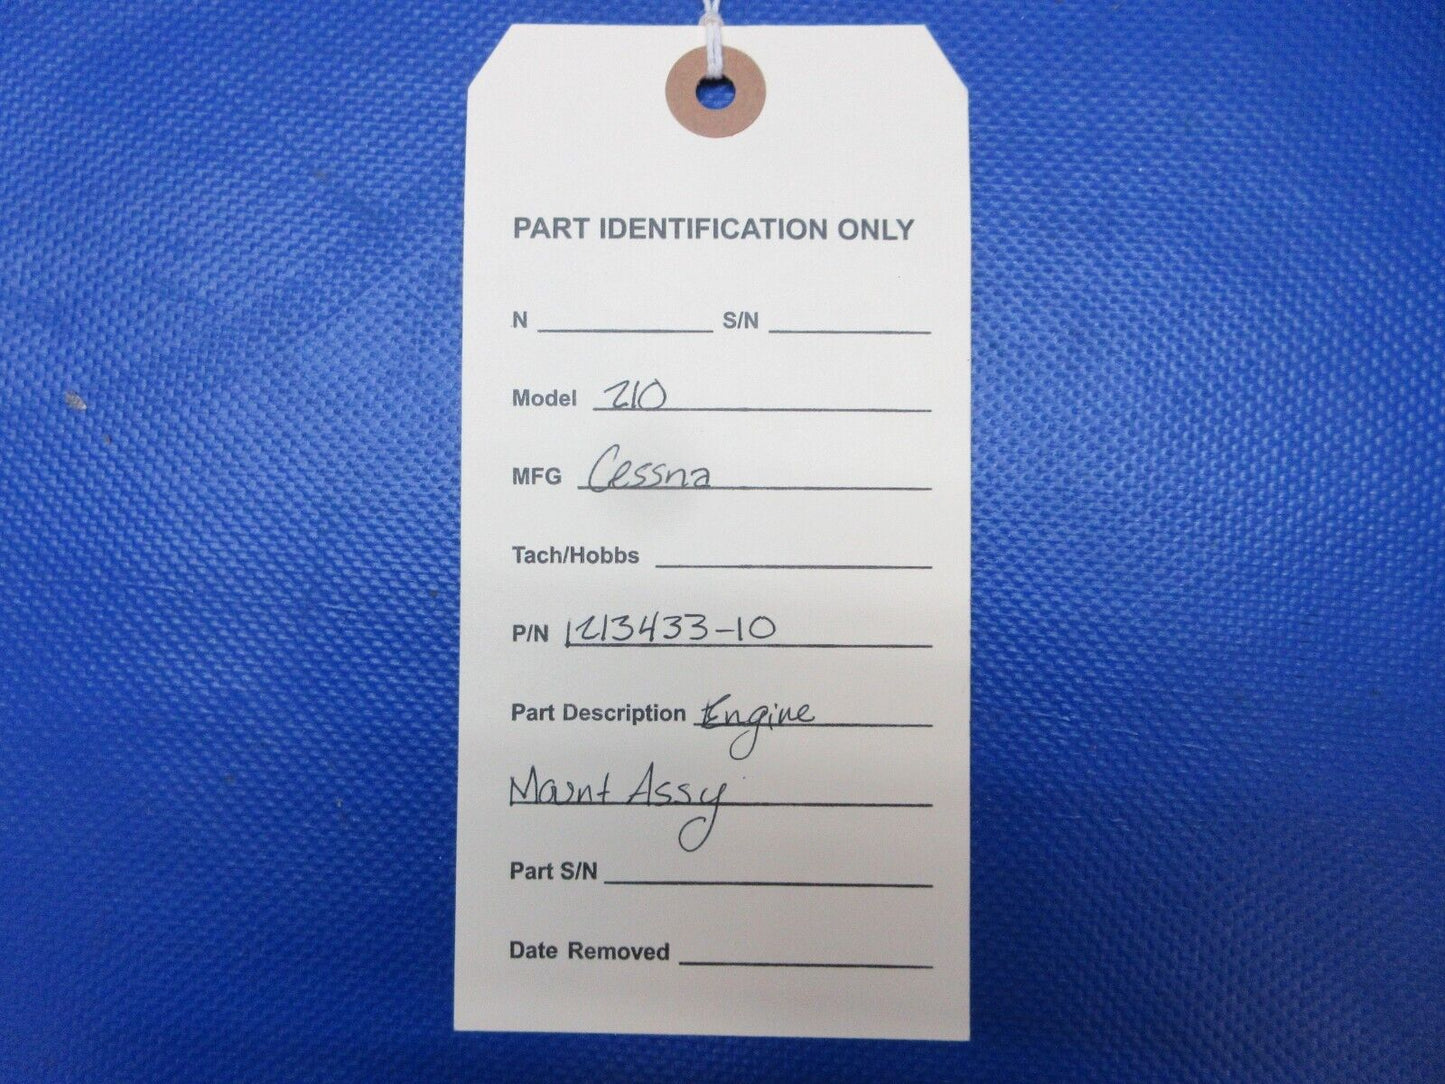 PART IDENTIFICATION ONLY
N S/N
Model 210
MFG Cessna
Tach/Hobbs
P/N 1213433-10
Part Description Engine
Mount Assy
Part S/N
Date Removed